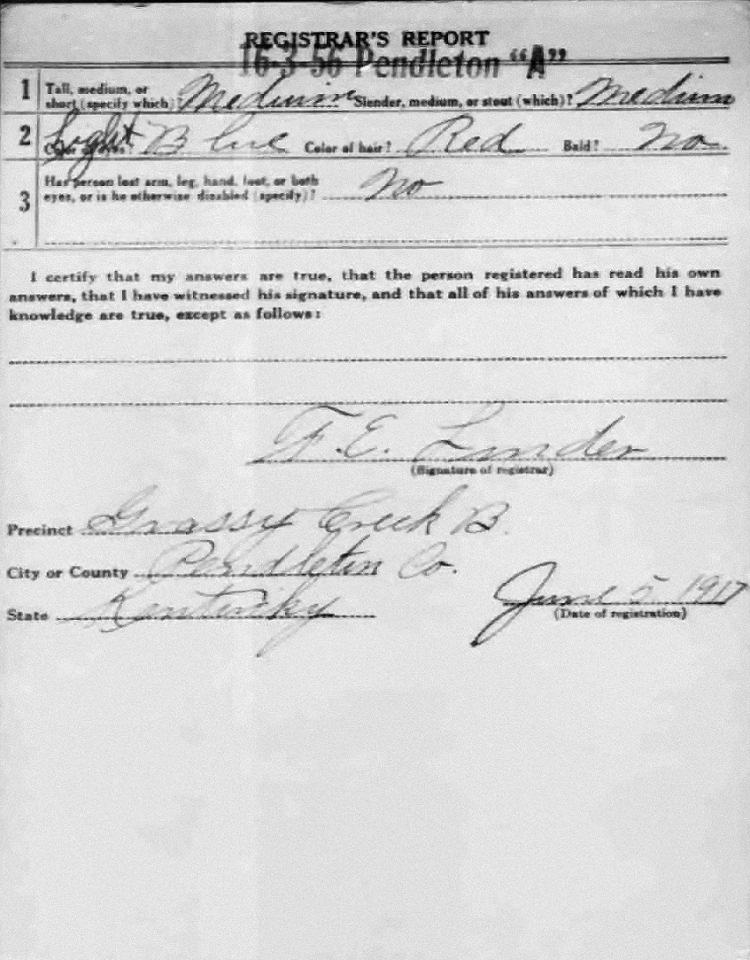 REGISTRAR'S REPORT
16-3-56 Pendleton "A"
1 Tall, medium, or short (specify which)? Medium Slender, medium, or stout (which)? Medium
2 Light Blue Color of hair? Red Bald? No
3 Has person lost arm, leg, hand, foot, or both
eyes, or is he otherwise disabled (specify)? No
I certify that my answers are true, that the person registered has read his own
answers, that I have witnessed his signature, and that all of his answers of which I have
knowledge are true, except as follows:
F. E. Linder
(Signature of registrar)
Precinct Grassy Creek B.
City or County Pendleton Co.
State Kentucky
June 5 1917
(Date of registration)